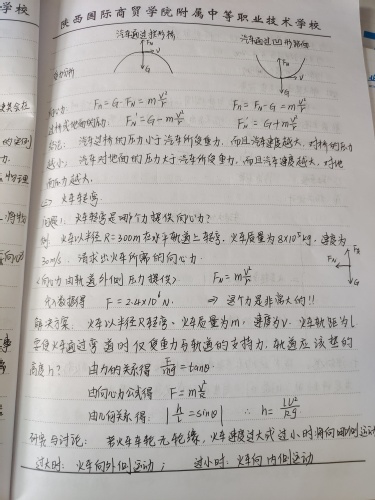 学校
陕西国际商贸学院附属中等职业技术学校
汽车通过拱形桥
汽车通过凹形路面
FN
V
G
FN
V
G
受力分析
向心力 FN=G-FN=mV²/r FN=FN-G=mV²/r
FN'=G-mV²/r FN'=G+mV²/r
结论: 汽车过桥的压力小于汽车所受重力, 而且汽车速度越大, 对桥的压力
越小; 汽车对地面的压力大于汽车所受重力, 而且汽车速度越大, 对地
面压力越大。
火车转弯
问题1. 火车转弯是哪个力提供向心力?
例. 火车以半径R=300m在水平轨道上转弯, 火车质量为8×10⁵kg, 速度为
30m/s, 请求出火车所需的向心力。
FN
G
<向心力由轨道外侧压力提供> FN=mV²/r
代入数据得 F=2.4×10⁶N. ⇒ 这个力是非常大的!!
解决方案: 火车以半径R转弯、火车质量为m, 速度为V. 火车轨距为l
要使火车通过弯道时仅受重力与轨道的支持力, 轨道应该垫的
高度h? 由力的关系得 F/mg=tanθ
由向心力公式得 F=mV²/r
由几何关系得: |h/L=sinθ| ∴ h=LV²/Rg
研究与讨论: 若火车车轮无轮缘, 火车速度过大或过小时将向哪侧运动
过大时: 火车向外侧运动; 过小时: 火车向内侧运动